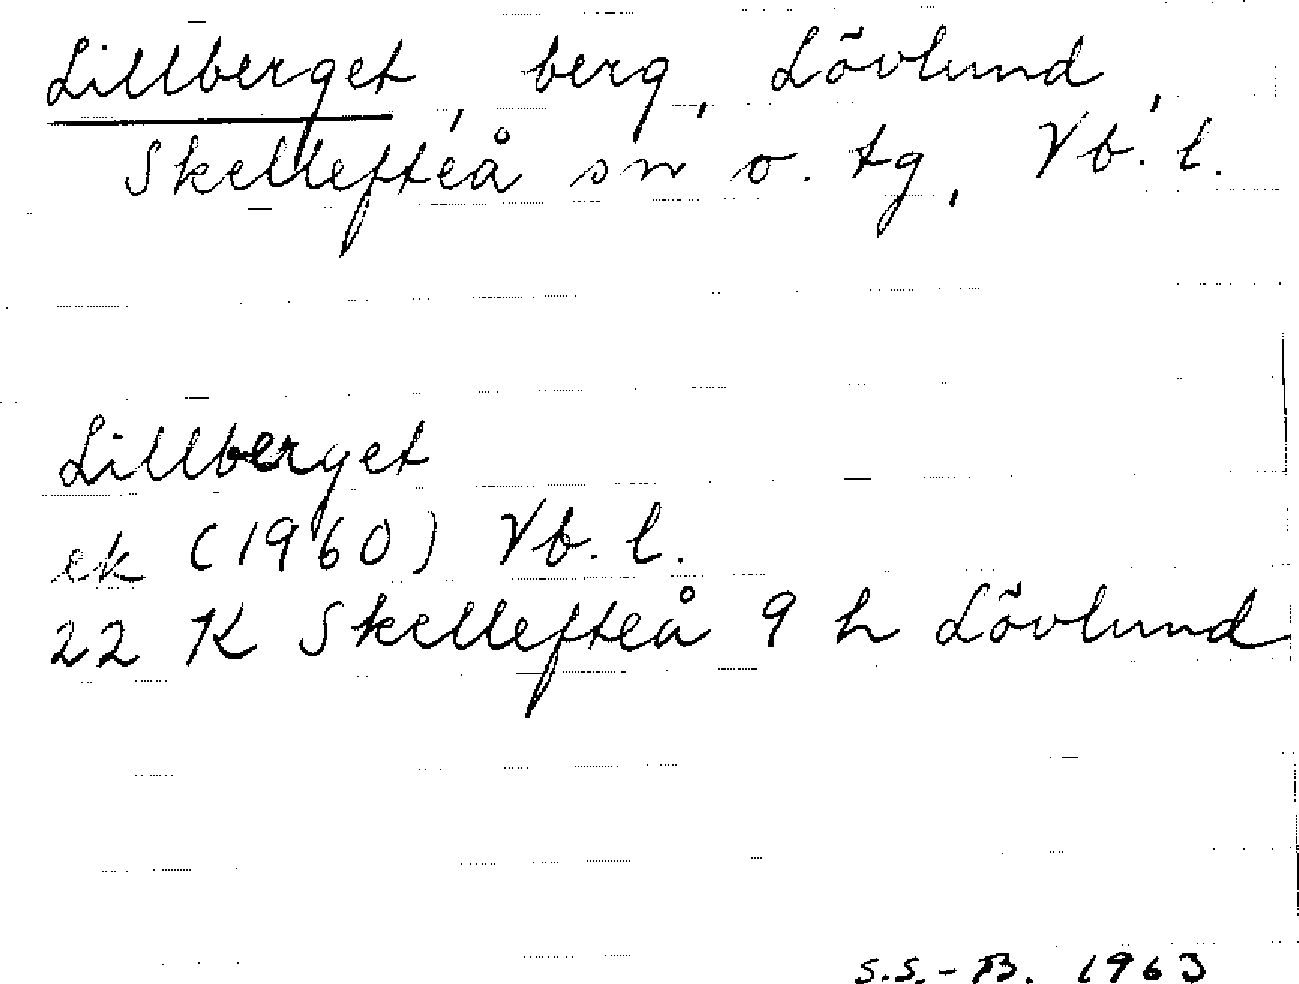 Lillberget, berg, Lövlund,
Skellefteå sn o. tg, Vb. l.
Lillberget
ek (1960) Vb. l.
22 K Skellefteå 9 h Lövlund
S.S.-B. 1963